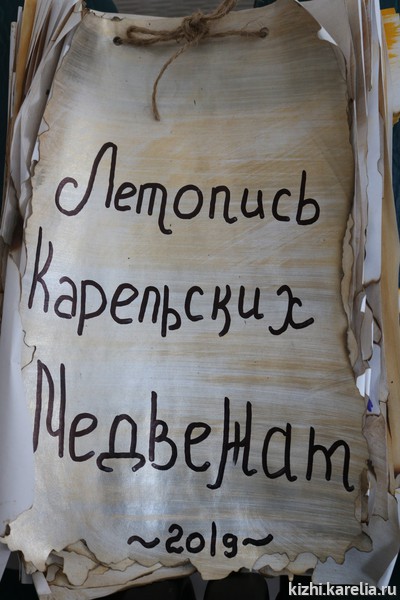 Летопись
Карельских
Медвежат
~2019~
kizhi.karelia.ru